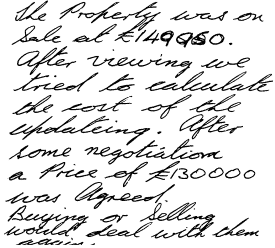 The Property was on
Sale at £149950.
After viewing we
tried to calculate
the cost of the
updateing. After
some negotiation
a Price of £130000
was Agreed.
Buying or Selling
would deal with them
again.